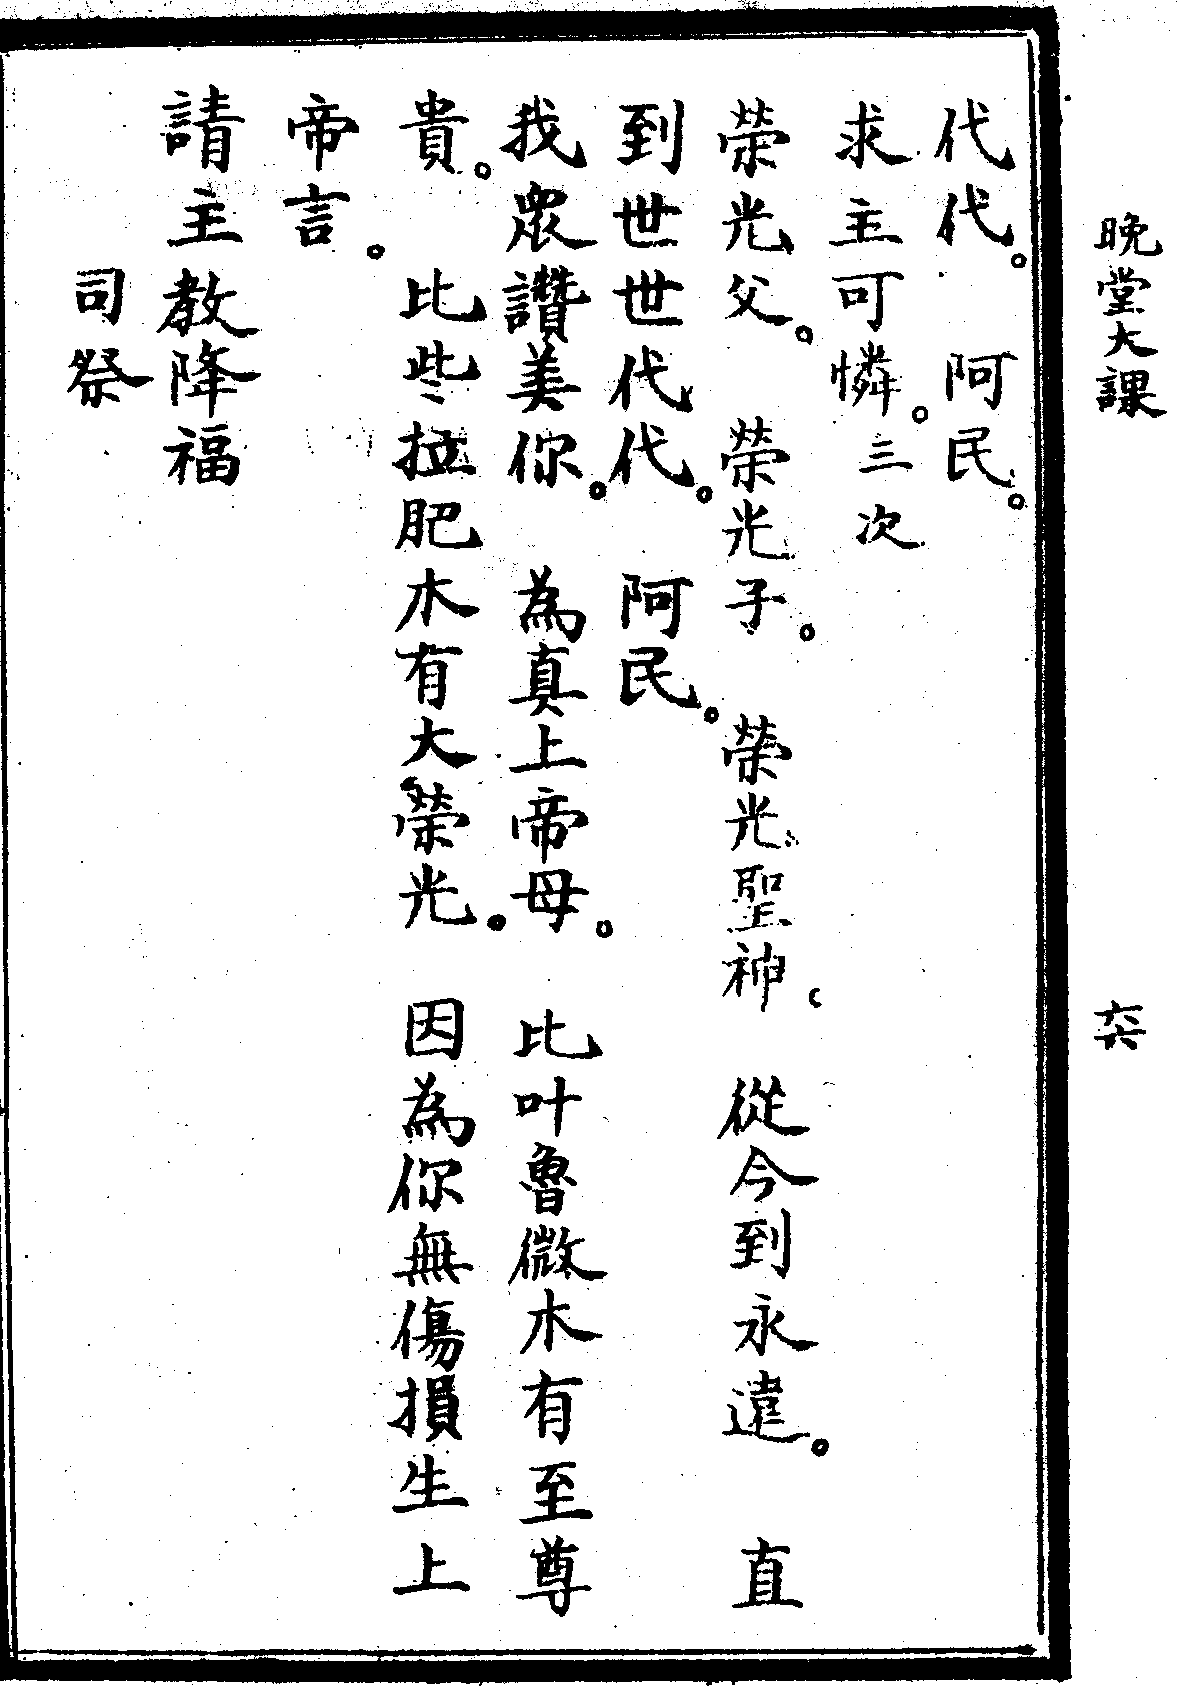 晚堂大課 六
代代。阿民。
求主可憐。三次
榮光父。榮光子。榮光聖神。從今到永遠。直
到世世代代。阿民。
我眾讚美你。為真上帝母。比叶魯微木有至尊
貴。比些拉肥木有大榮光。因為你無傷損生上
帝言。
請主教降福
司祭